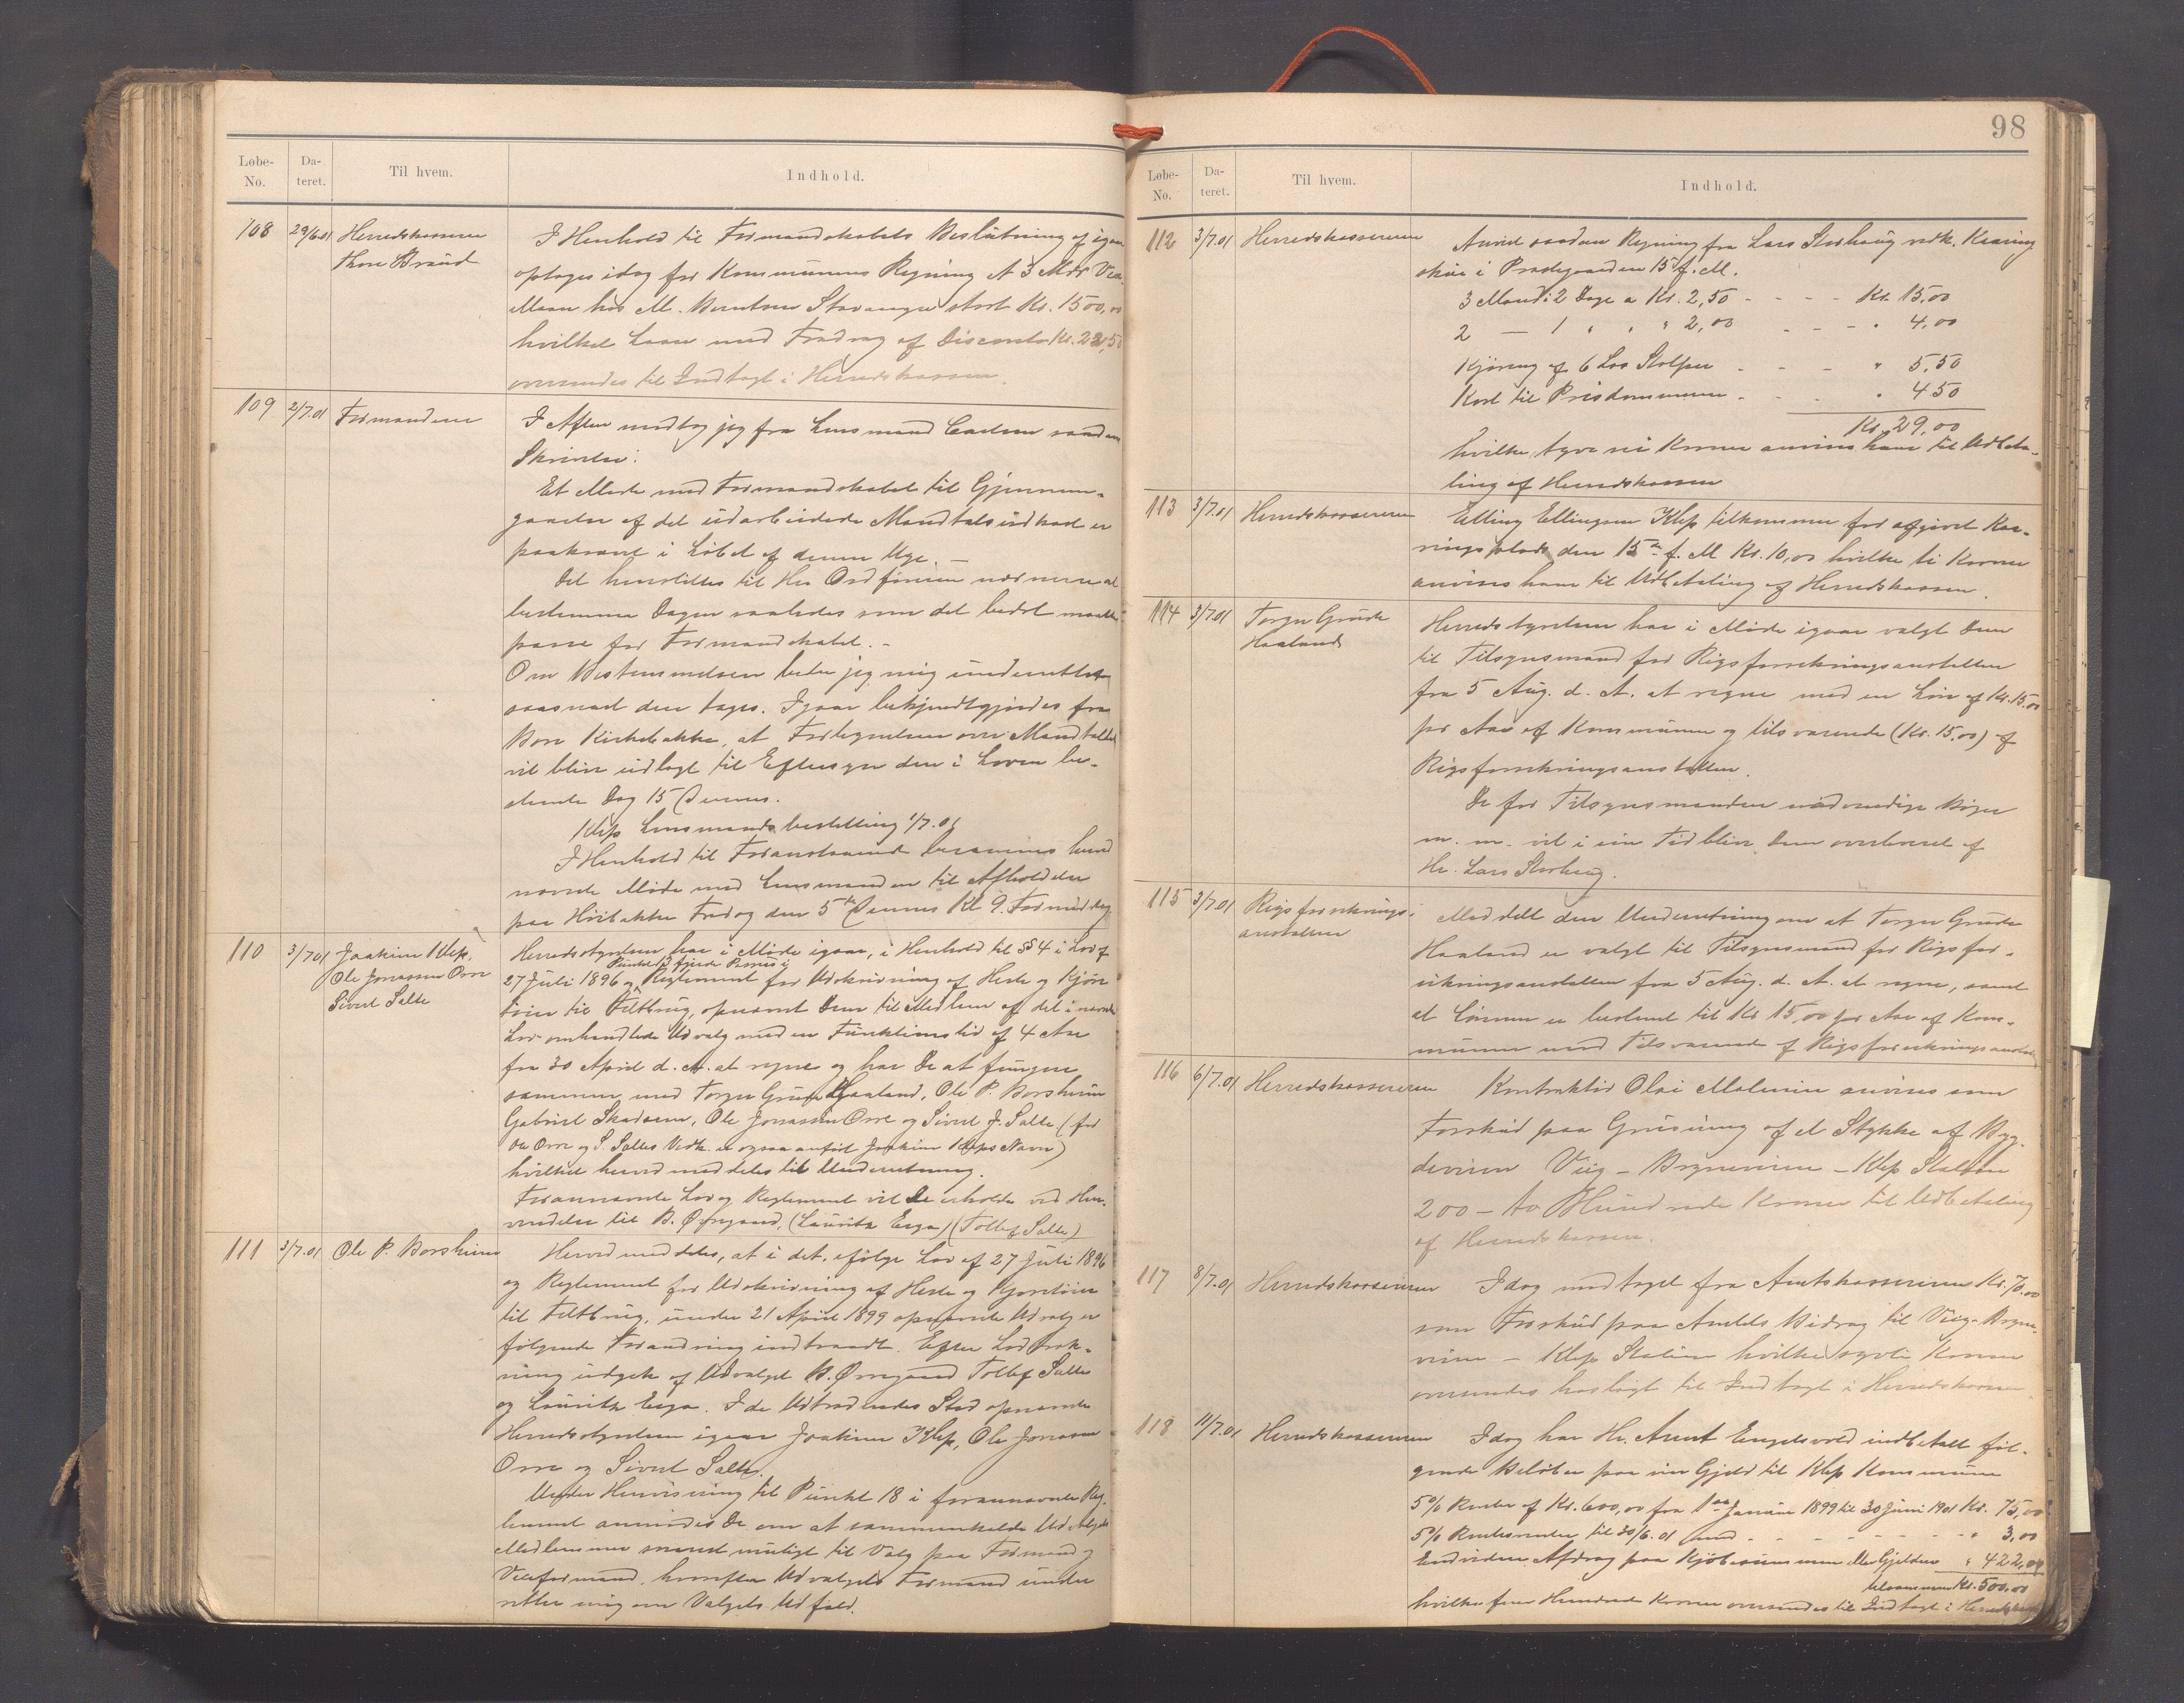 Løbe-No.
Da-teret.
Til hvem.
Indhold.
108 29/6.01 Herredskasserer
Thore Braud
I Henhold til Formandskabets Beslutning af igaar
optoges idag for Kommunens Regning et 3 Mdr
Laan hos M. Berntsen Stavanger stort Kr. 1500,00
hvilket Laan med Fradrag af Disconto Kr. 22,50
oversendes til Indtægt i Herredskassen.
109 2/7.01 Formændene
I Aften modtog jeg fra Lensmand Carlsen saadan
Skrivelse:
Et Møde med Formandskabet til Gjennem-
gaaelse af det udarbeidede Mandtalsudkast er
paakrævet i Løbet af denne Uge. –
Det henstilles til Hr Ordføreren nærmere at
bestemme Dagen saaledes som det bedst maatte
passe for Formandskabet. –
Om Bestemmelsen beder jeg mig underrettet
saasnart den tages. Igaar bekjendtgjordes fra
Bore Kirkebakke, at Fortegnelsen over Mandtallet
vil blive udlagt til Eftersyn den i Loven be-
stemte Dag 15 dennes.
Klep Lensmandsbestilling 1/7.01
I Henhold til Foranstaaende berammes herved
nævnte Møde med Lensmanden til Afholdelse
paa Hvitakke Fredag den 5te dennes Kl 9. Formiddag
110 3/7 01 Joakim Klep.
Ole Jonassen Orre
Sivert Salte
Herredsstyrelsen har i Møde igaar, i Henhold til §§ 4 i Lov af
Punktet 3 fjerde Passus i
27 Juli 1896 og Reglement for Udskrivning af Heste og Kjøre-
tøier til Feltbrug, opnævnt Dem til Medlem af det i nævnte
Lov omhandlede Udvalg med en Funktionstid af 4 Aar
fra 30 April d. A. at regne og har De at fungere
sammen med Torger Grude Haaland, Ole P. Borsheim
Gabriel Skadsem, Ole Jonassen Orre og Sivert J. Salte (for
Ole Orre og S. Saltes Vedk. er ogsaa anført Joakim Kleps Navn)
hvilket herved meddeles til Underretning.
Forannævnte Lov og Reglement vil De erholde ved Hen-
vendelse til B. Øvregaard, (Lauritz Erga) (Tollef Salte)
111 3/7.01 Ole P. Borsheim
Herved meddeles, at i det, ifølge Lov af 27 Juli 1896
og Reglement for Udskrivning af Heste og Kjøretøier
til Feltbrug, under 21 April 1899 opnævnte Udvalg er
følgende Forandring indtraadt. Efter Lodtræk-
ning udgik af Udvalget B. Øvregaard Tollef Salte
og Lauritz Erga. I de Udtrædendes Sted opnævnte
Herredsstyrelsen igaar Joakim Klep, Ole Jonassen
Orre og Sivert Salte.
Under Henvisning til Punkt 18 i forannævnte Reg-
lement anmodes De om at sammenkalde Udvalgets
Medlemmer snarest muligt til Valg paa Formand og
Viceformand, hvorefter Udvalgets Formand under-
retter mig om Valgets Udfald.
98
Løbe-No.
Da-teret.
Til hvem.
Indhold.
112 3/7.01 Herredskassereren
Anvist saadan Regning fra Lars Storhaug vedk. Kaaring
skue i Prestegaarden 15 f. M.
3 Mand i 2 Dage a Kr. 2,50 - - - Kr. 15,00
2 — 1 " " " 2,00 - - - " 4,00
Kjøring af 6 Las Stolper - - - " 5,50
Kost til Prisdommerne - - " 4 50
Kr. 29,00
hvilke tyve ni Kroner anvises ham til Udbeta-
ling af Herredskassen
113 3/7.01 Herredskassereren
Elling Ellingsen Klep tilkommer for afgivet Kaa-
ringsplads den 15de f. M Kr. 10,00 hvilke ti Kroner
anvises ham til Udbetaling af Herredskassen.
114 3/7.01 Torger Grude
Haaland
Herredsstyrelsen har i Møde igaar valgt Dem
til Tilsynsmand for Rigsforsikringsanstalten
fra 5 Aug. d. A. at regne med en Løn af Kr. 15.00
pr Aar af Kommunen og tilsvarende (Kr. 15.00) af
Rigsforsikringsanstalten.
De for Tilsynsmanden nødvendige Bøger
m. m. vil i sin Tid blive Dem overleveret af
Hr. Lars Storhaug.
115 3/7.01 Rigsforsikrings-
anstalten
Meddelt den Underretning om at Torger Grude
Haaland er valgt til Tilsynsmand for Rigsfor-
sikringsanstalten fra 5 Aug. d. A. at regne, samt
at Lønnen er bestemt til Kr 15,00 pr Aar af Kom-
munen med Tilsvarende af Rigsforsikringsanstalten
116 6/7.01 Herredskassereren
Kontraktør Olai Malmin anvises som
Forskud paa Grusning af et Stykke af Byg-
deveien Viig – Bryneveien – Klep Station
200 – to Hundrede Kroner til Udbetaling
af Herredskassen.
117 8/7.01 Herredskassereren
Idag modtaget fra Amtskassereren Kr. 70.00
som Forskud paa Amtets Bidrag til Viig-Bryne-
veien – Klep Station hvilke sytti Kroner
oversendes hoslagt til Indtægt i Herredskassen.
118 11/7.01 Herredskassereren
Idag har Hr. Arent Engelsvold indbetalt føl-
gende Beløb paa sin Gjeld til Klep Kommune
5% Renter af Kr. 600,00 fra 1ste Januar 1899 til 30 Juni 1901 Kr. 75,00
5% Rentesrenter til 30/6. 01 med - - - - - - " 3,00
Endvidere Afdrag paa Kjøbesummen eller Gjelden " 422,00
tilsammen Kr. 500.00
hvilke fem Hundrede Kroner oversendes til Indtægt i Herredskassen